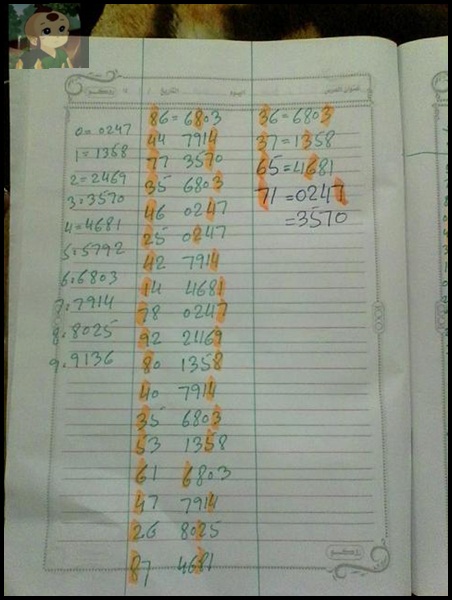 0=0247
1=1358
2=2469
3=3570
4=4681
5=5792
6=6803
7=7914
8=8025
9=9136
86=6803
44 7914
77 3570
35 6803
46 0247
25 0247
42 7914
14 4681
78 0247
92 2469
80 1358
40 7914
35 6803
53 1358
61 6803
47 7914
26 8025
87 4681
36=6803
37=1358
65=4681
71=0247
=3570